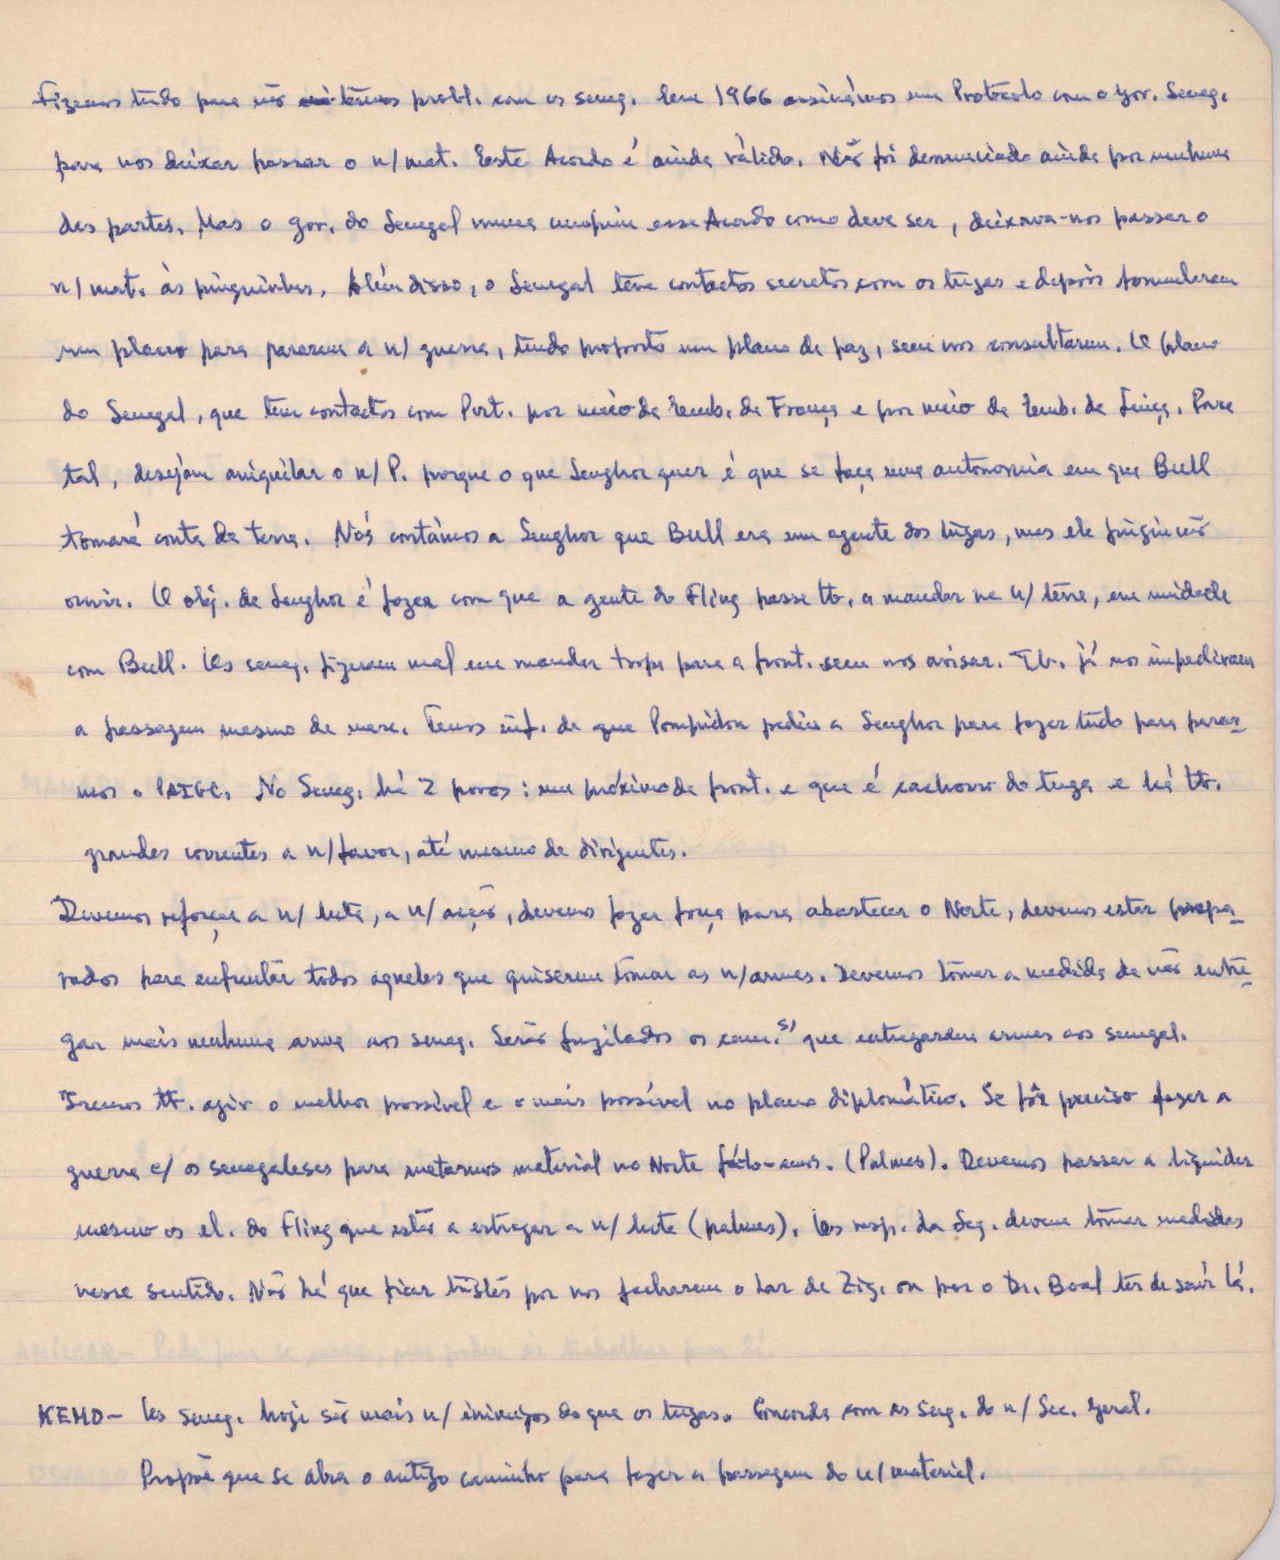 Fizemos tudo para não termos probl. com os seneg. Em 1966 assinámos um Protocolo com o gov. Seneg.
para nos deixar passar o n/ mat. Este Acordo é ainda válido. Não foi denunciado ainda por nenhuma
das partes. Mas o gov. do Senegal nunca cumpriu esse Acordo como deve ser, deixava-nos passar o
n/ mat. às pinguinhas. Além disso, o Senegal teve contactos secretos com os tugas e depois formularam
um plano para pararem a n/ guerra, tendo proposto um plano de paz, sem nos consultarem. O plano
do Senegal, que tem contactos com Port. por meio da Emb. da França e por meio da Emb. da Suíça. Para
tal, desejam aniquilar o n/ P. porque o que Senghor quer é que se faça uma autonomia em que Bull
tomará conta da terra. Nós contámos a Senghor que Bull era um agente dos tugas, mas ele fingiu não
ouvir. O obj. de Senghor é fazer com que a gente do Fling passe tb. a mandar na n/ terra, em unidade
com Bull. Os seneg. fizeram mal em mandar tropa para a front. sem nos avisar. Tb. já nos impediram
a passagem mesmo de merc. Temos inf. de que Pompidou pediu a Senghor para fazer tudo para parar-
mos o PAIGC. No Seneg. há 2 povos: um próximo da front. e que é cachorro do tuga e há tb.
grandes correntes a n/ favor, até mesmo de dirigentes.
Devemos reforçar a n/ luta, a n/ acção, devemos fazer força para abastecer o Norte, devemos estar prepa-
rados para enfrentar todos aqueles que quiserem tomar as n/ armas. Devemos tomar a medida de não entre-
gar mais nenhuma arma aos seneg. Serão fuzilados os cam.s) que entregarem armas aos senegal.
Iremos tb. agir o melhor possível e o mais possível no plano diplomático. Se fôr preciso fazer a
guerra c/ os senegaleses para metermos material no Norte fá-lo-emos. (Palmas). Devemos passar a liquidar
mesmo os el. do Fling que estão a estragar a n/ luta (palmas). Os resp. da Seg. devem tomar medidas
nesse sentido. Não há que ficar tristes por nos fecharem o Lar de Zig. ou por o Dr. Boal ter de sair lá.
KEMO - Os seneg. hoje são mais n/ inimigos do que os tugas. Concorda com as sug. do n/ Sec. Geral.
Propõe que se abra o antigo caminho para fazer a passagem do n/ material.